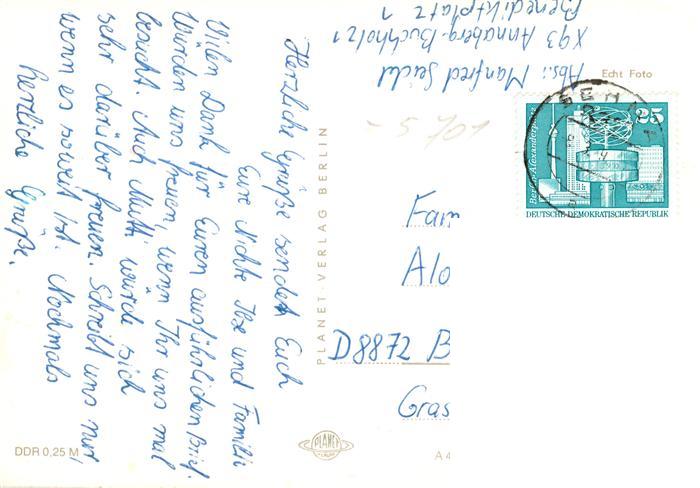 Herzliche Grüße sendet Euch
Eure Nichte Ilse und Familie
Vilen Dank für Euren ausführlichen Brief.
Würden uns freuen, wenn Ihr uns mal
besucht. Auch Mutti würde sich
sehr darüber freuen. Schreibt uns nur,
wenn es soweit ist. Nochmals
herzliche Grüße.
Abs.: Manfred Seidel
X93 Annaberg-Buchholz 1
Benediktplatz 1
Echt Foto
25
Berlin-Alexanderplatz
DEUTSCHE DEMOKRATISCHE REPUBLIK
- 5 701
Fam
Alo
D8872 B
Gras
PLANET-VERLAG BERLIN
DDR 0,25 M
PLANET
A 4